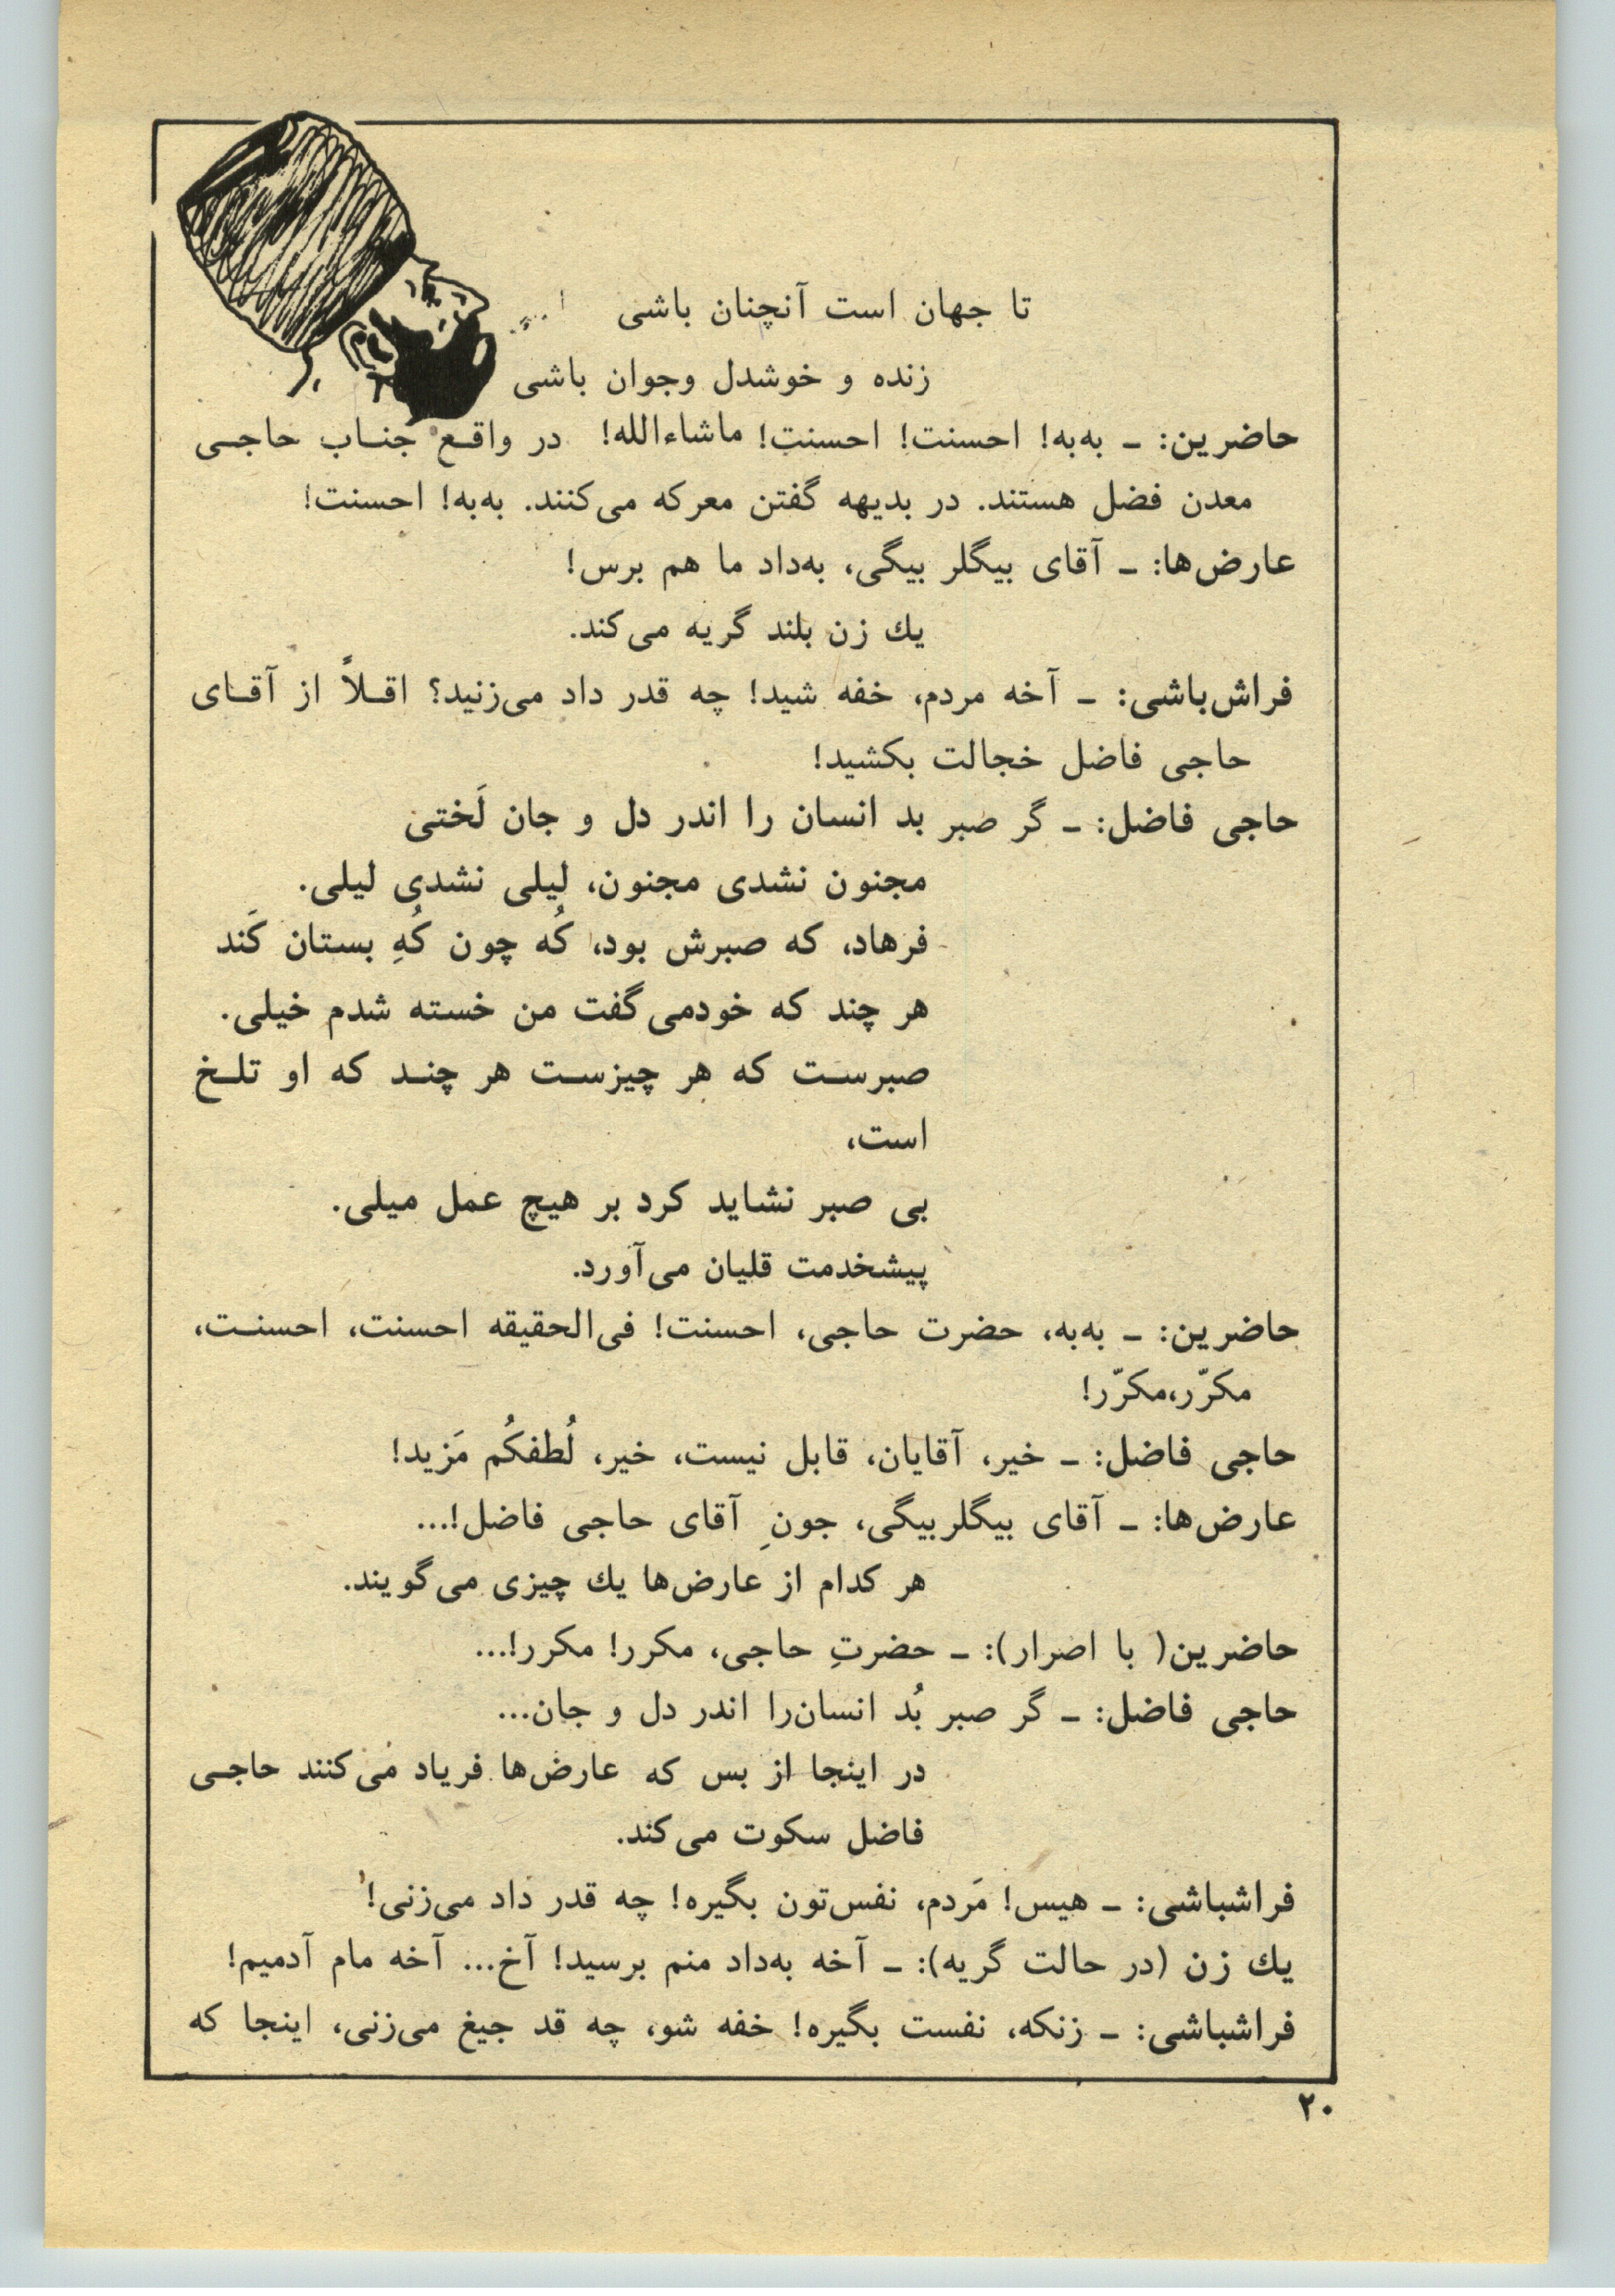 تا جهان است آنچنان باشی
زنده و خوشدل وجوان باشی
حاضرین: ـ به‌به! احسنت! احسنت! ماشاءالله! در واقـع جنـاب حاجـی
معدن فضل هستند. در بدیهه گفتن معرکه می‌کنند. به‌به! احسنت!
عارض‌ها: ـ آقای بیگلر بیگی، به‌داد ما هم برس!
یك زن بلند گریه می‌کند.
فراش‌باشی: ـ آخه مردم، خفه شید! چه قدر داد می‌زنید؟ اقـلاً از آقـای
حاجی فاضل خجالت بکشید!
حاجی فاضل: ـ گر صبر بد انسان را اندر دل و جان لَختی
مجنون نشدی مجنون، لیلی نشدی لیلی.
فرهاد، که صبرش بود، کُه چون کُهِ بستان کَند
هر چند که خودمی‌گفت من خسته شدم خیلی.
صبرسـت که هر چیزسـت هر چنـد که او تلـخ
است،
بی صبر نشاید کرد بر هیچ عمل میلی.
پیشخدمت قلیان می‌آورد.
حاضرین: ـ به‌به، حضرت حاجی، احسنت! فی‌الحقیقه احسنت، احسنـت،
مکرّر،مکرّر!
حاجی فاضل: ـ خیر، آقایان، قابل نیست، خیر، لُطفکُم مَزید!
عارض‌ها: ـ آقای بیگلربیگی، جونِ آقای حاجی فاضل!...
هر کدام از عارض‌ها یك چیزی می‌گویند.
حاضرین( با اصرار): ـ حضرتِ حاجی، مکرر! مکرر!...
حاجی فاضل: ـ گر صبر بُد انسان‌را اندر دل و جان...
در اینجا از بس که عارض‌ها فریاد می‌کنند حاجـی
فاضل سکوت می‌کند.
فراشباشی: ـ هیس! مَردم، نفس‌تون بگیره! چه قدر داد می‌زنی!
یك زن (در حالت گریه): ـ آخه به‌داد منم برسید! آخ... آخه مام آدمیم!
فراشباشی: ـ زنکه، نفست بگیره! خفه شو، چه قد جیغ می‌زنی، اینجا که
۲۰